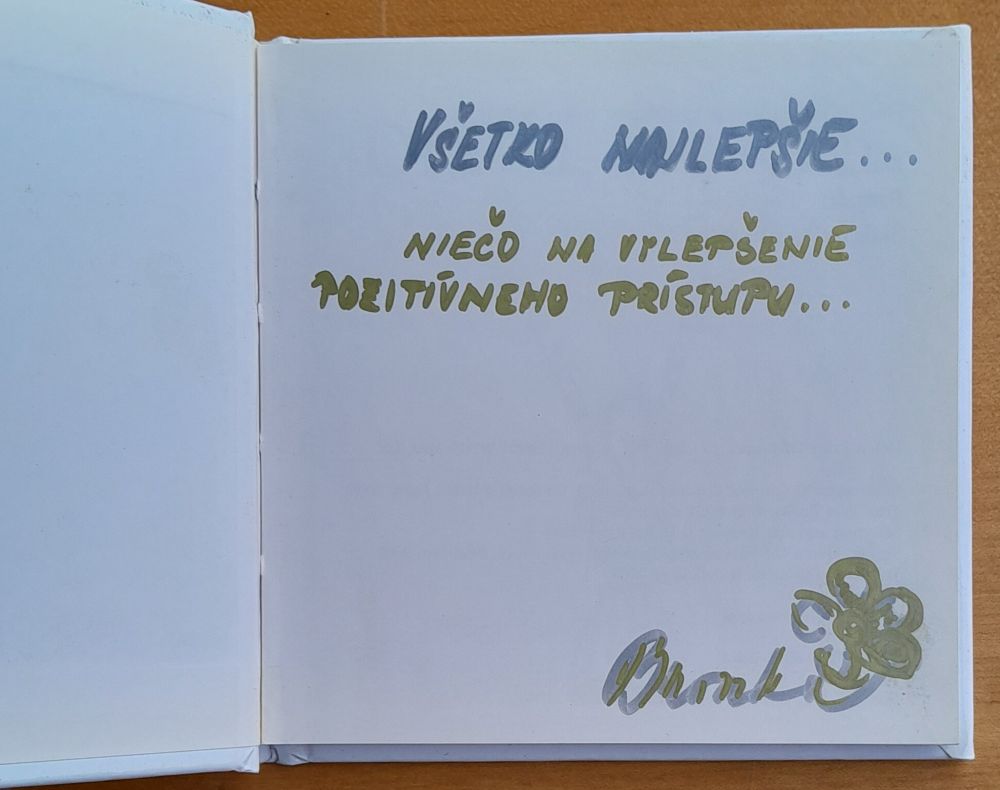 VŠETKO NAJLEPŠIE...
NIEČO NA VYLEPŠENIE
POZITÍVNEHO PRÍSTUPU...
Bronka